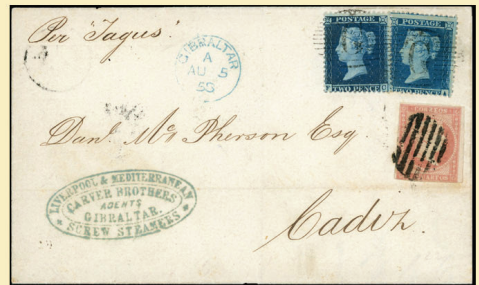 Per "Tagus".
GIBRALTAR
A
AU 5
POSTAGE
TWO PENCE
POSTAGE
TWO PENCE
CORREOS
Danl. McPherson Esq.
LIVERPOOL & MEDITERRANEAN
CARVER BROTHERS
AGENTS
GIBRALTAR.
SCREW STEAMERS
Cadiz.